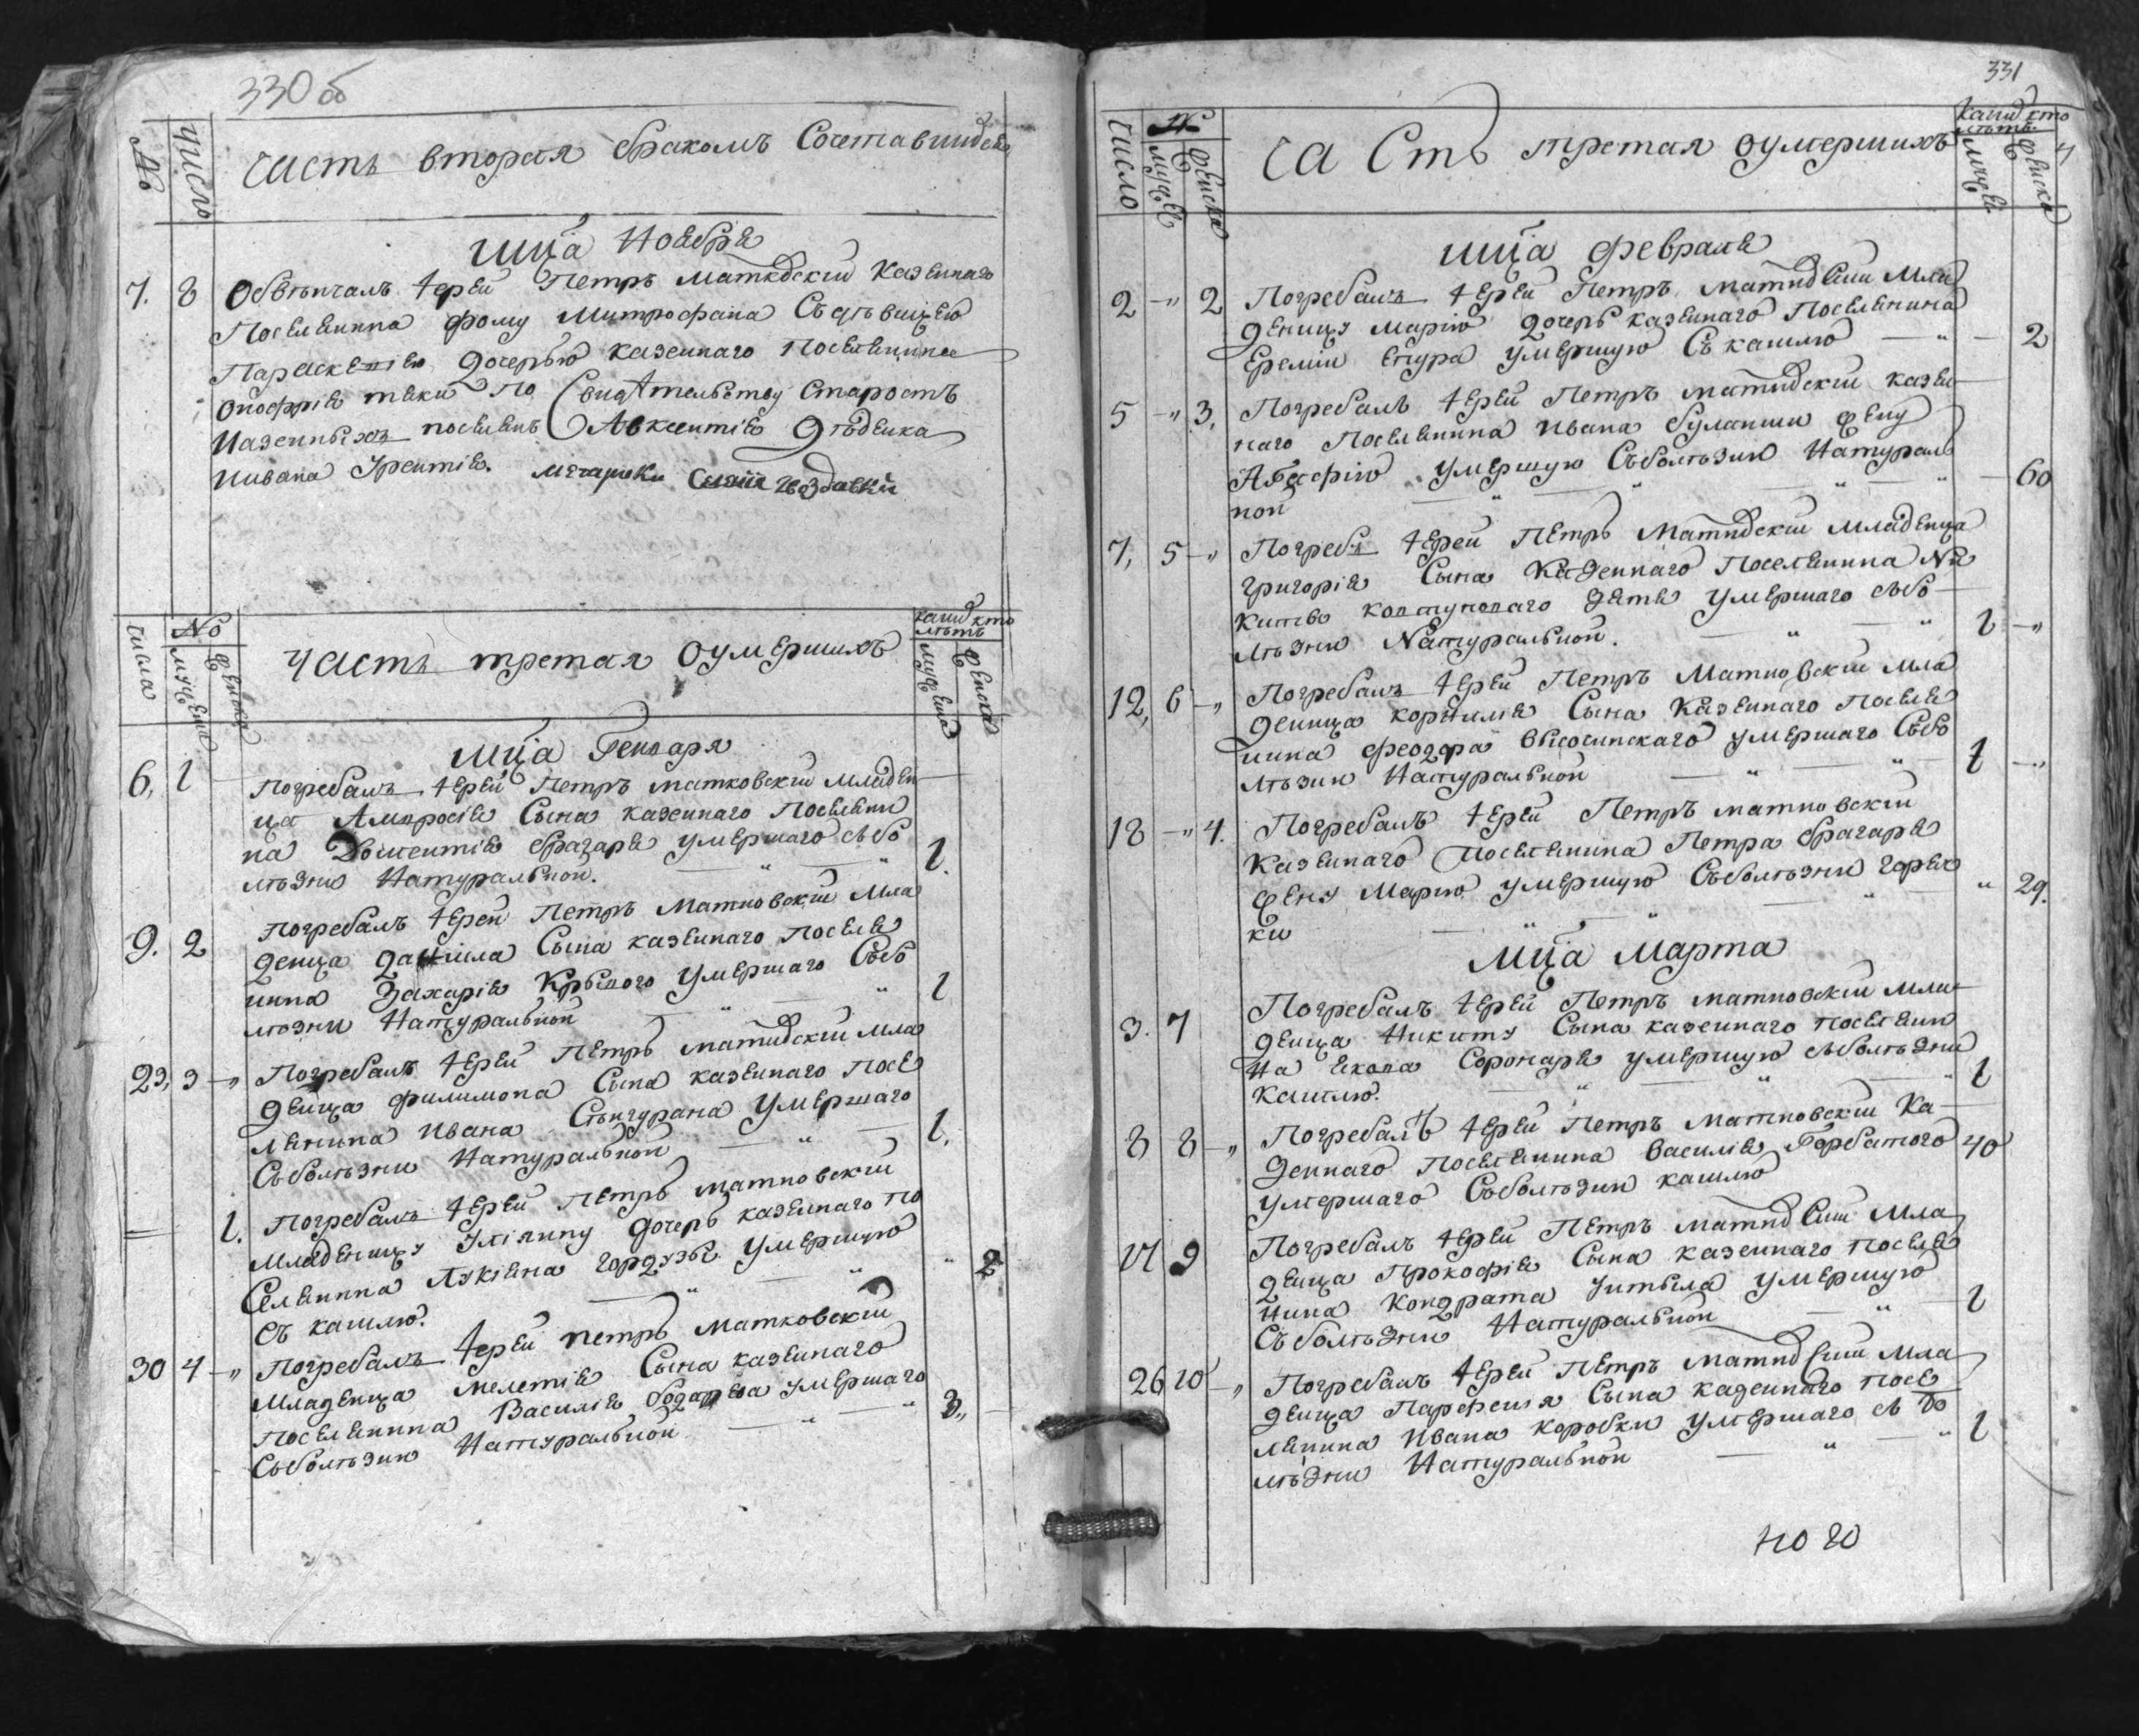 330 об
№ число
Часть вторая бракомъ Сочетавшихся
мца Ноября
7. 8 Обвѣнчалъ Iерей Петръ Матковскiй Казеннаго
Поселянина Фому Митрофана Съ дѣвицею
Параскевiею дочерью казеннаго поселянина
Онофрiя по Свидѣтельству Старостъ
Казенныхъ поселянъ Авксентiя Дѣденка
Ивана
числа № мужеска женска
Часть третая оумершихъ
каких кто лѣтъ мужеска женска
мца Генваря
6, 1 Погребалъ Iерей Петръ Матковскiй младен
ца Амвросiя Сына казеннаго Поселяни
на Доментiя Брагаря умершаго съ бо
лѣзни Натуральной. 1.
9. 2 Погребалъ Iерей Петръ Матковскiй Мла
денца Данiила Сына казеннаго поселя
нина Захарiя Крывого умершаго Съ бо
лѣзни Натуральной 1
23, 3 -„ Погребалъ Iерей Петръ Матковскiй мла
денца Филимона Сына казеннаго посе
лянина Ивана Стынгурана умершаго
Съ болѣзни Натуральной 1.
1. Погребалъ Iерей Петръ Матковскiй
младеницу Улiяну дочерь казеннаго по
Селянина Лукiяна Гордузы умершую
Съ кашлю. 2
30 4 -„ Погребалъ Iерей Петръ Матковскiй
Младенца Мелетiя Сына казеннаго
поселянина Василiя Бодарева умершаго
Съ болѣзни Натуральной 3„
331
число № мужеск женска
Часть третая оумершихъ
каких кто лѣтъ мужеск женска
мца Февраля
2 -„ 2 Погребалъ Iерей Петръ Матковскiй Мла
деницу Марiю дочерь казеннаго Поселянина
Еремiи Епура умершую Съ кашлю 2
5 -„ 3. Погребалъ Iерей Петръ Матковскiй казен
наго Поселянина Ивана жену
Агафiю умершую Съ болѣзни Натураль
ной 60
7, 5 -„ Погребъ Iерей Петръ Матковскiй младенца
Григорiя Сына Казеннаго Поселянина Ни
киты умершаго съ бо
лѣзни Натуральной. 1 -„
12, 6 -„ Погребалъ Iерей Петръ Матковскiй мла
денца Корнилiя Сына Казеннаго поселя
нина Феодора Высочинскаго умершаго Съ бо
лѣзни Натуральной 1 -„
18 -„ 4. Погребалъ Iерей Петръ Матковскiй
Казеннаго Поселянина Петра Брагаря
жену Марiю умершую Съ болѣзни горяч
ки 29.
мца Марта
3. 7 Погребалъ Iерей Петръ Матковскiй мла
денца Никиту Сына казеннаго поселяни
на Якова умершую съ болѣзни
Кашлю. 1
8 8 -„ Погребалъ Iерей Петръ Матковскiй Ка
зеннаго поселянина Василiя Горбатого 40
умершаго Съ болѣзни кашлю
17 9 Погребалъ Iерей Петръ Матковскiй Мла
денца Прокофiя Сына казеннаго поселя
нина Кондрата умершую
Съ болѣзни Натуральной 1
26 10 -„ Погребалъ Iерей Петръ Матковскiй мла
денца Парфенiя Сына казеннаго посе
лянина Ивана Коробки умершаго съ бо
лѣзни Натуральной 1